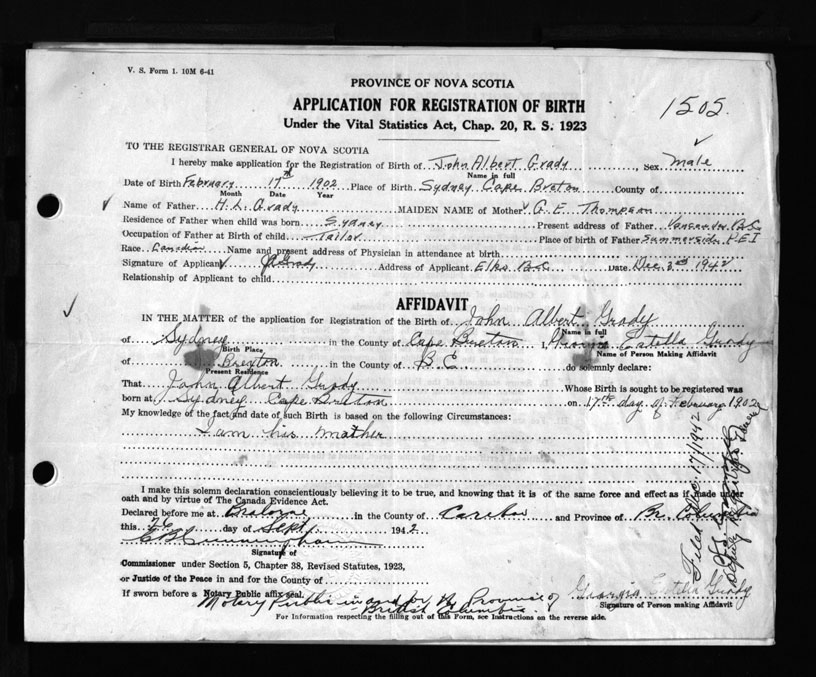 V. S. Form 1. 10M 6-41
PROVINCE OF NOVA SCOTIA
APPLICATION FOR REGISTRATION OF BIRTH
1505.
Under the Vital Statistics Act, Chap. 20, R. S. 1923
TO THE REGISTRAR GENERAL OF NOVA SCOTIA
I hereby make application for the Registration of Birth of John Albert Grady, Sex Male
Name in full
Date of Birth February 17th 1902 Place of Birth Sydney Cape Breton County of
Month Date Year
Name of Father H. L. Grady MAIDEN NAME of Mother G. E. Thompson
Residence of Father when child was born Sydney Present address of Father Vancouver B.C.
Occupation of Father at Birth of child Tailor Place of birth of Father Summerside P.E.I
Race Name and present address of Physician in attendance at birth
Signature of Applicant Grady Address of Applicant Elko B.C. Date Dec. 3rd 1942
Relationship of Applicant to child
AFFIDAVIT
IN THE MATTER of the application for Registration of the Birth of John Albert Grady
Name in full
of Sydney in the County of Cape Breton I, Estella Grady
Birth Place Name of Person Making Affidavit
of in the County of do solemnly declare:
Present Residence
That John Albert Grady Whose Birth is sought to be registered was
born at Sydney Cape Breton on 17th day of February 1902
My knowledge of the fact and date of such Birth is based on the following Circumstances:
I am his mother
I make this solemn declaration conscientiously believing it to be true, and knowing that it is of the same force and effect as if made under
oath and by virtue of The Canada Evidence Act.
Declared before me at Bralorne in the County of Cariboo and Province of Br. Columbia
this 26 day of Sept 1942
C B Cunningham
Signature of
Commissioner under Section 5, Chapter 38, Revised Statutes, 1923,
or Justice of the Peace in and for the County of
If sworn before a Notary Public affix seal.
Notary Public in and for the Province of
British Columbia.
Georgia Estella Grady
Signature of Person making Affidavit
For Information respecting the filling out of this Form, see Instructions on the reverse side.
Filed Dec 17/1942
Deputy Registrar General